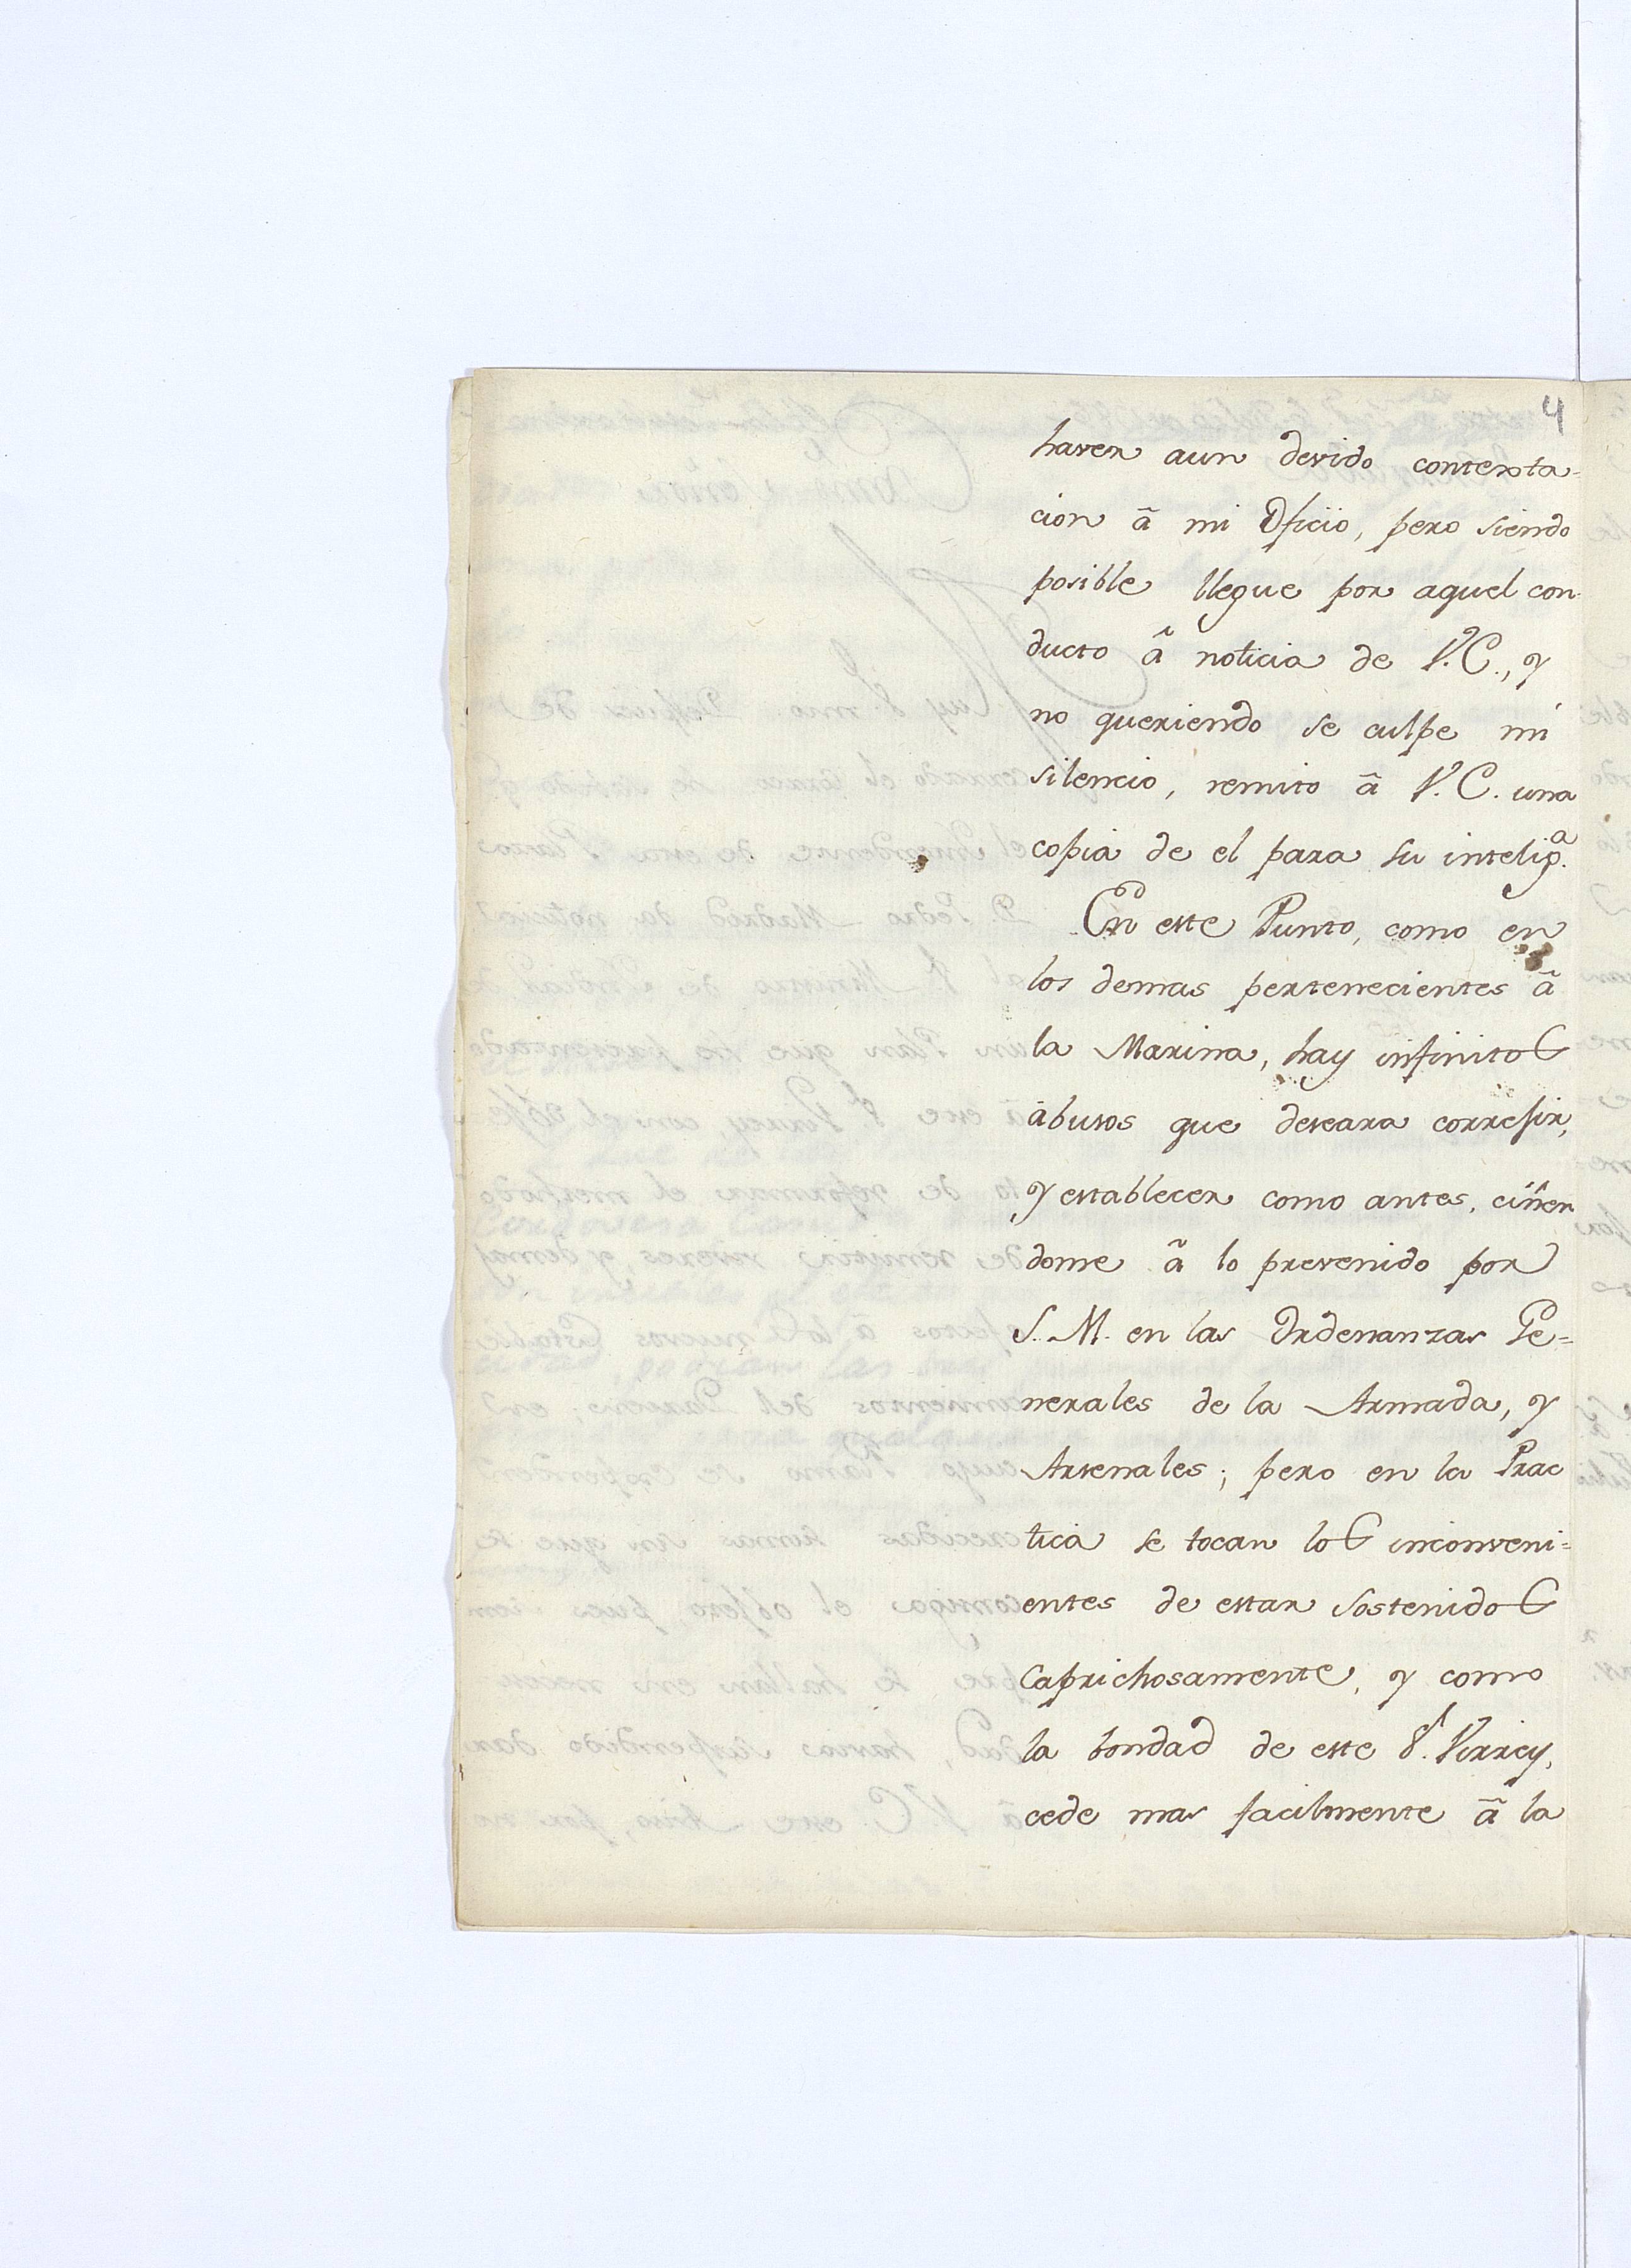 4
haver aun devido contexta-
cion â mi Oficio, pero siendo
posible llegue por aquel con-
ducto â noticia de V. E., y
no queriendo se culpe mi
silencio, remito â V. E. una
copia de el para su intelig.ª
En este Punto, como en
los demas pertenecientes â
la Marina, hay infinitos
abusos que deseara correjir,
y establecer como antes, ciñen
dome â lo prevenido por
S. M. en las Ordenanzas Ge=
nerales de la Armada, y
Arsenales; pero en la Prac
tica se tocan los inconveni=
entes de estar sostenidos
Caprichosamente, y como
la bondad de este S.r Virrey,
cede mas facilmente â la